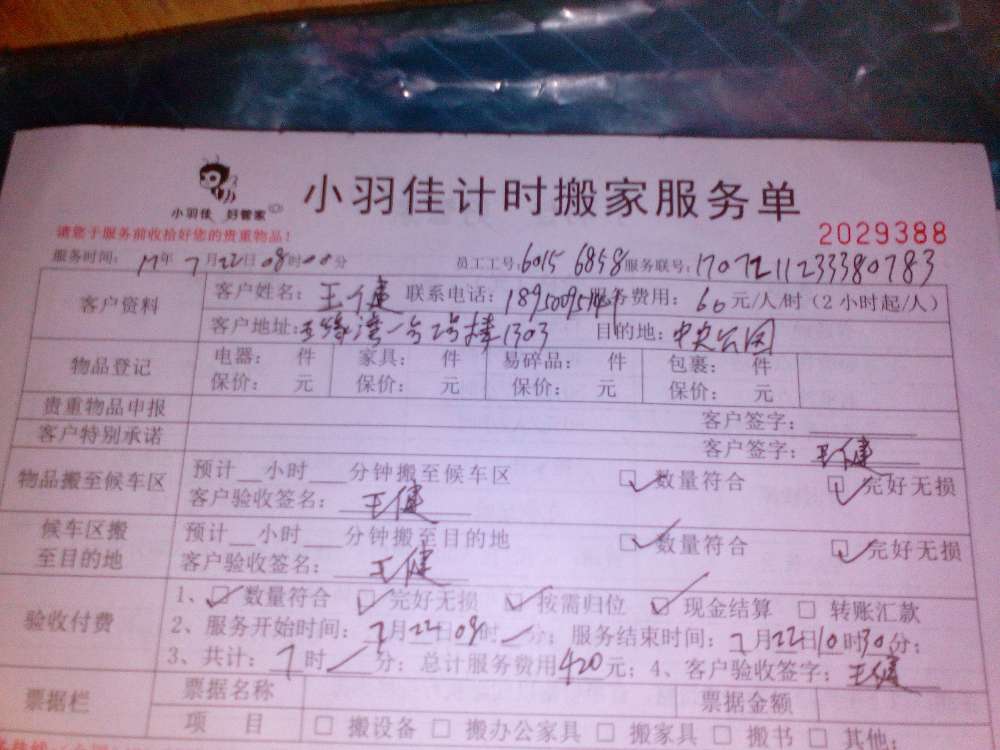 小羽佳 好管家
小羽佳计时搬家服务单
请您于服务前收拾好您的贵重物品!
2029388
服务时间: 17年 7月22日08时00分 员工工号:6015 6858 服务联号:1707211233380783
客户资料
客户姓名: 王健 联系电话: 服务费用: 60元/人/时(2小时起/人)
客户地址: 湾一号2号楼1303 目的地: 中央公园
物品登记
电器: 件 家具: 件 易碎品: 件 包裹: 件
保价: 元 保价: 元 保价: 元 保价: 元
贵重物品申报 客户签字:
客户特别承诺 客户签字: 王健
物品搬至候车区
预计__小时___分钟搬至候车区 ☑数量符合 ☑完好无损
客户验收签名: 王健
候车区搬至目的地
预计__小时___分钟搬至目的地 ☑数量符合 ☑完好无损
客户验收签名: 王健
验收付费
1、☑数量符合 ☑完好无损 ☑按需归位 ☑现金结算 □转账汇款
2、服务开始时间: 7月22日08时/分; 服务结束时间: 7月22日10时30分;
3、共计: 7时/分; 总计服务费用420元; 4、客户验收签字: 王健
票据栏
票据名称 票据金额
项 目 □搬设备 □搬办公家具 □搬家具 □搬书 □其他: